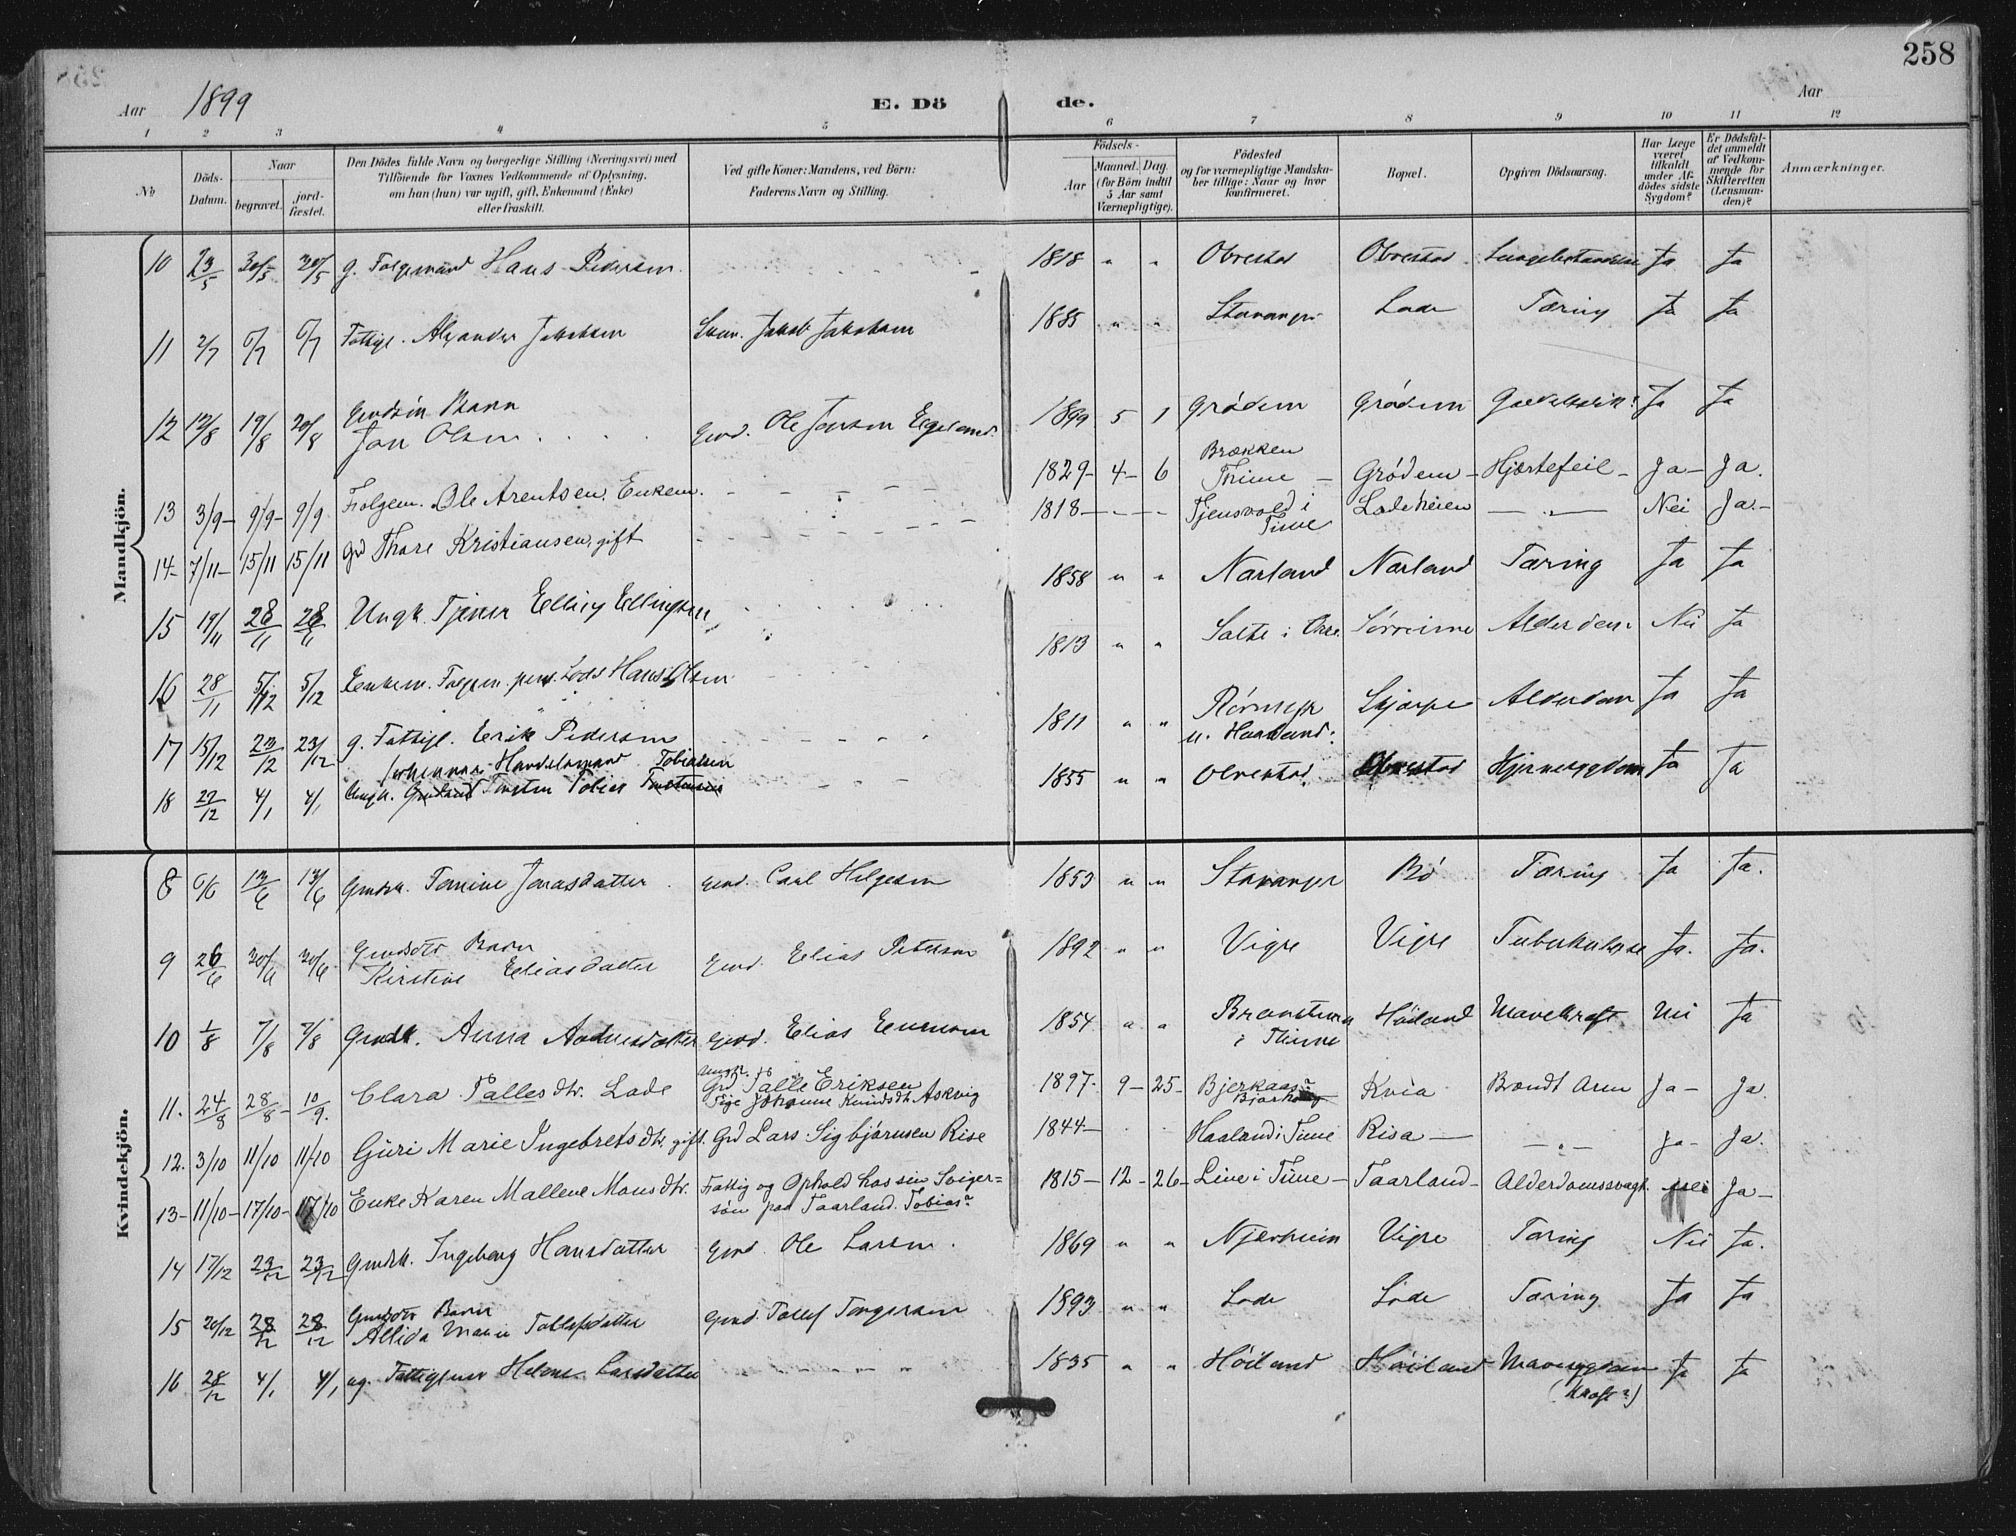 258
Aar 1899
E. Döde.
Aar
1 2 3 4 5 6 7 8 9 10 11 12
No
Döds-Datum.
Naar
begravet.
jord-fæstet.
Den Dödes fulde Navn og borgerlige Stilling (Næringsvei) med
Tilföiende for Voxnes Vedkommende af Oplysning,
om han (hun) var ugift, gift, Enkemand (Enke)
eller fraskilt.
Ved gifte Koner: Mandens, ved Börn:
Faderens Navn og Stilling.
Födsels-
Aar
Maaned. Dag.
(for Börn indtil
5 Aar samt
Værnepligtige).
Födested
og for værnepligtige Mandska-
ber tillige: Naar og hvor
konfirmeret.
Bopæl.
Opgiven Dödsaarsag.
Har Læge
været
tilkaldt
under Af-
dödes sidste
Sygdom?
Er Dödsfal-
det anmeldt
af Vedkom-
mende for
Skifteretten
(Lensman-
den)?
Anmærkninger.
Mandkjön.
10 23/5 30/5 30/5 g. Folgemand Hans Pedersen 1818 " " Obrestad Obrestad Ja Ja
11 2/7 6/7 6/7 Fattigl. Alexander Jakobsen Jakob Jakobsen 1885 " " Stavanger Lode Tæring Ja Ja
12 12/8 19/8 20/8 Gmdsön Barn
Jon Olsen Gmd. Ole Jonsen Egeland 1899 5 1 Grødem Grødem Ja Ja
13 3/9 9/9 9/9 Folgem. Ole Arentsen, Enkem. 1829 4 6 Brækken
Thime Grødem Hjertefeil Ja Ja.
14 7/11 15/11 15/11 Grd Thore Kristiansen, gift 1818 Tjensvold i
Time Lodeheien " Nei Ja.
15 19/11 28/11 28/11 Ungk. Tjener Elling Ellingsen 1858 " " Nærland Nærland Tæring Ja Ja
16 28/11 5/12 5/12 Enkem. Folgem. Lode Hans Olsen 1813 " " Salte i Sørreime Alderdom Nei Ja
17 15/12 23/12 23/12 g. Fattigl. Erik Pedersen 1811 " " Haaland Skjærpe Alderdom Ja Ja
forhenvær. Handelsmand Tobiasen
18 27/12 4/1 4/1 Ungk. Torsten Tobias 1855 " " Obrestad Obrestad Hjernesygdom Ja Ja
Kvindekjön.
8 6/6 13/6 13/6 Gmdsk. Tomine Jonasdatter Gmd. Carl Helgesen 1853 " " Stavanger Bö Tæring Ja Ja.
9 26/6 30/6 30/6 Gmdsdtr Barn
Kirstine Eliasdatter Gmd. Elias Petersen 1892 " " Vigre Vigre Tuberkulose Ja. Ja.
10 1/8 7/8 7/8 Gmdsk. Anna Andreasdatter Gmd. Elias Enersen 1854 " " i Thime Høiland Mavekræft Nei Ja
11. 24/8 28/8 10/9. Clara Tallesdtr. Lode Talle Eriksen
Pige Johanne Knudsdt. Askvig 1897 9 25 Bjerkaas Kvia Brændt Arm Ja Ja.
12. 3/10 11/10 11/10 Guri Marie Ingebretsdtr, gift. Grd Lars Sigbjørnsen Risa 1844 Haaland i Time Risa " Ja Ja.
13 11/10 17/10 17/10 Enke Karen Mallene Monsdtr. Fattig og Ophold hos sin Sviger=
søn paa Taarland. Tobias 1815 12 26 Line i Time Taarland Alderdomssvagh. nei Ja
14 17/12 23/12 23/12 Gmdsk. Ingeborg Hansdatter Gmd. Ole Larsen. 1869 " " Njærheim Vigre Tæring Nei Ja.
15 20/12 28/12 28/12 Gmdsdtr Barn
Allida Marie Tollefsdatter Gmd. Tollef Torgersen 1893 " " Lode Lode Tæring Ja Ja
16 28/12 4/1 4/1 ug. Fattiglem Helene Larsdatter 1835 " " Høiland Høiland Mavesygdom
(Kræft?) Ja Ja